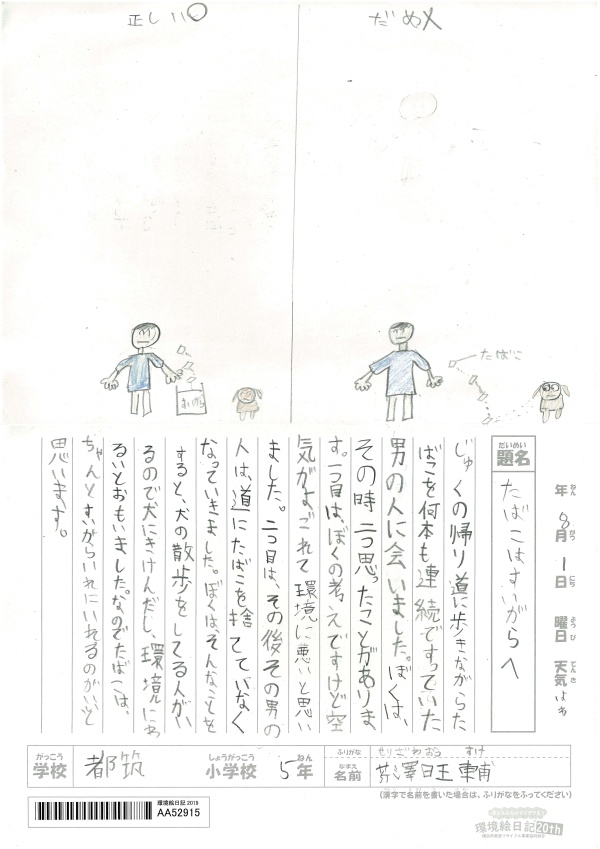 正しい〇
だめ✗
すいがら
たばこ
だいめい
題名
たばこはすいがらへ
年 8月 1日 曜日 天気 はれ
ねん がつ にち ようび てんき
じゅくの帰り道に歩きながらた
ばこを何本も連続ですっていた
男の人に会いました。ぼくは、
その時二つ思ったことがありま
す。一つ目は、ぼくの考えですけど空
気がよごれて環境に悪いと思い
ました。二つ目は、その後その男の
人は、道にたばこを捨てていなく
なっていきました。ぼくはそんなことを
すると、犬の散歩をしてる人がい
るので犬にきけんだし、環境にわ
るいとおもいました。なのでたばこは、
ちゃんとすいがらいれにいれるのがいいと
思います。
がっこう
学校 都筑
しょうがっこう ねん
小学校 5年
ふりがな せりざわおうすけ
なまえ
名前 芹澤旺輔
(漢字で名前を書いた場合は、ふりがなをふってください)
環境絵日記2019
AA52915
環境絵日記20th